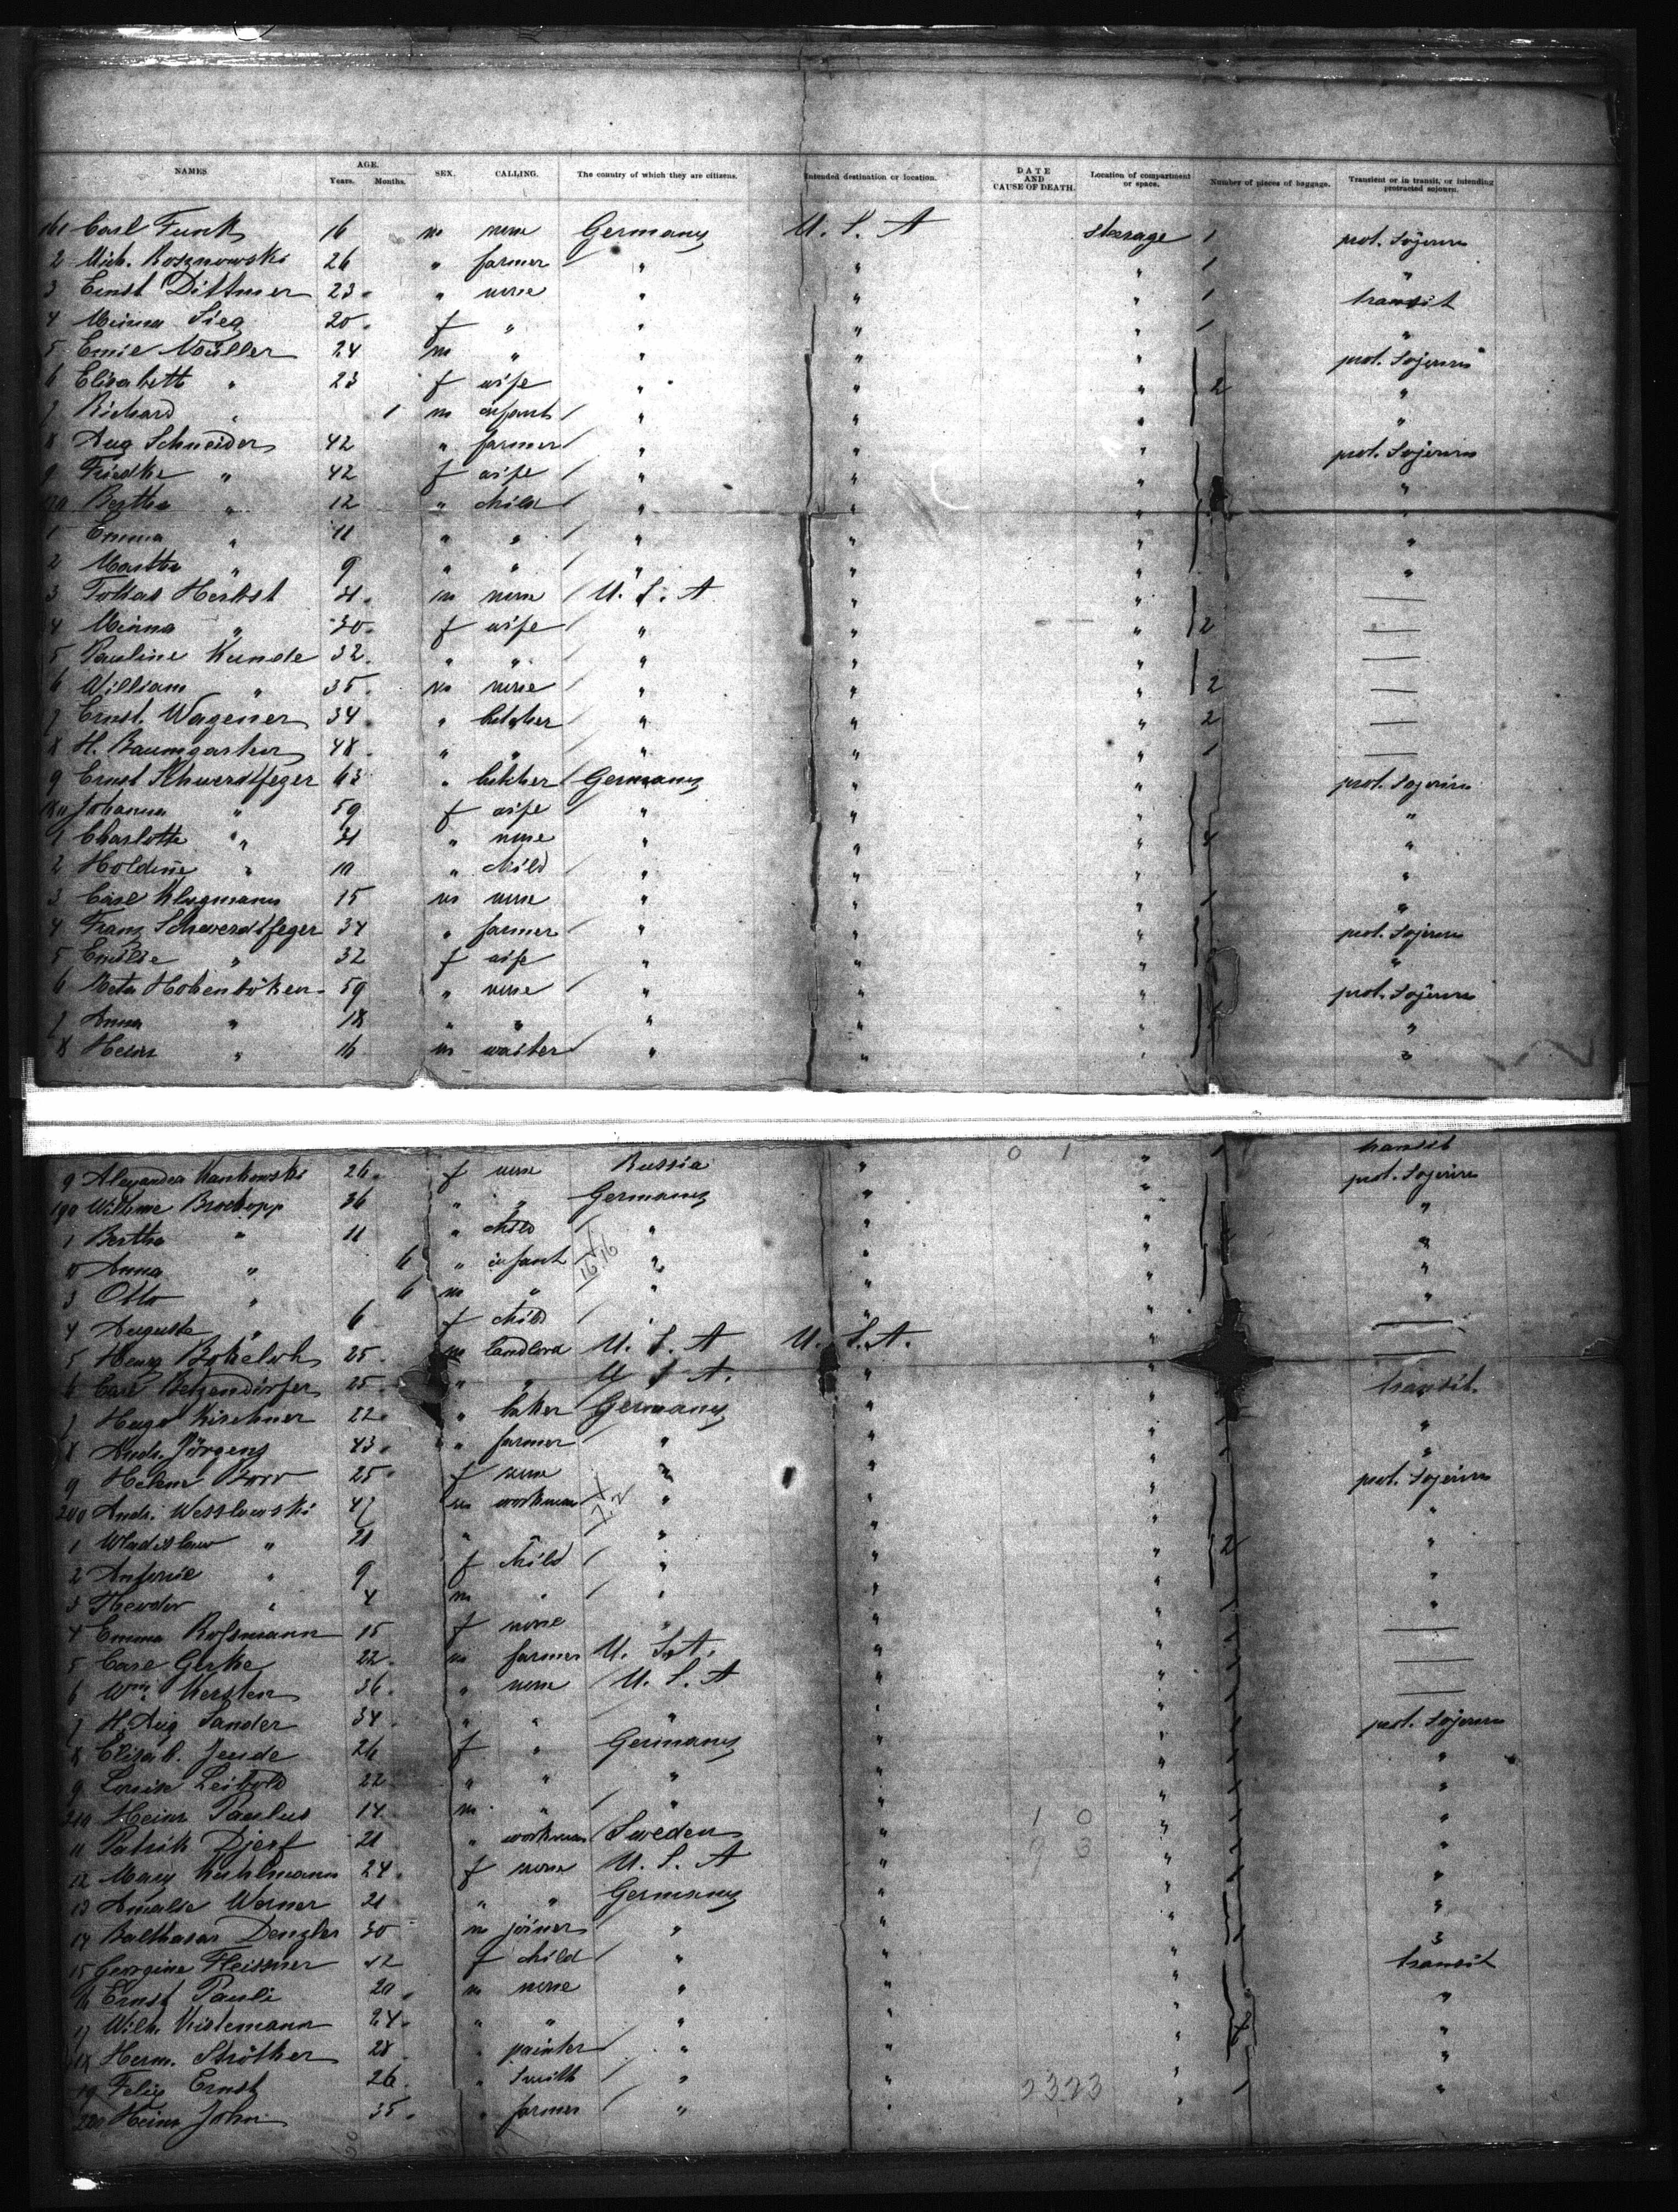 NAMES. AGE. Years. Months. SEX. CALLING. The country of which they are citizens. Intended destination or location. DATE AND CAUSE OF DEATH. Location of compartment or space. Number of pieces of baggage. Transient or in transit, or intending protracted sojourn.
161 Carl Funk 16 m none Germany U. S. A Steerage 1 prot. Sojourn
2 Mich. Rosznowski 26 " farmer " " " 1 "
3 Ernst Dittmer 23 " none " " " 1 transit
4 Minna Sieg 20 f " " " " 1 "
5 Emil Müller 24 m " " " " prot. Sojourn
6 Elisabeth " 23 f wife " " " 2 "
7 Richard " 1 m infant " " " "
8 Aug Schneider 42 " farmer " " " prot. Sojourn
9 Friedke " 42 f wife " " " "
170 Bertha " 12 " child " " " "
1 Emma " 11 " " " " " "
2 Martha " 9 " " " " " "
3 Tobias Herbst m none U. S. A " " —
4 Minna " 30 f wife " " " 2 —
5 Pauline Kunde 32 " " " " " —
6 William " 35 m none " " " 2 —
7 Ernst. Wagener 34 " butcher " " " 2 —
8 H. Baumgarten 48 " " " " " 1 —
9 Ernst Schwerdtfeger 63 " butcher Germany " " prot. Sojourn
180 Johanna " 59 f wife " " " "
1 Charlotte " " none " " " 4 "
2 Holdine " 10 " child " " " "
3 Carl Klugmann 15 m none " " " 1 "
4 Franz Schwerdtfeger 34 " farmer " " " prot. Sojourn
5 Emilie " 32 f wife " " " "
6 Meta Hohenböken 59 " none " " " prot. Sojourn
7 Anna " 18 " " " " " "
8 Heinr " 16 m waiter " " " "
9 Alexandra Kankowski 26 f none Russia " 0 1 " 1 transit
190 Wilhmie Brockopp 36 " " Germany " " prot. Sojourn
1 Bertha " 11 " child " " " "
Anna " 6 " infant " " " "
3 Otto " 6 m " " " " "
4 Auguste " 6 f child " " " "
5 Henry Bokeloh 25 m landlord U. S. A U. S. A. " —
6 Carl Betzendörfer 25 " " U S A. " " —
7 Hugo Kirchner 22 " baker Germany " " transit
8 Andr. Jörgens 43 " farmer " " " "
9 Helene Dorr 25 f none " " " "
200 Andr. Wesslowski 47 m workman " " " prot. Sojourn
1 Wladislaw " " " " " 2 "
2 Antonie " 9 f child " " " "
3 Theodor " 4 m " " " " "
4 Emma Rossmann 15 f none " " " "
5 Carl Gerke 22 m farmer U. S. A. " " —
6 Wm. Kersten 36 " none U. S. A " " —
7 H. Aug Sander 34 " " " " " —
8 Elisab. Jeude 26 f " Germany " " prot. Sojourn
9 Louise Leibold 22 " " " " " "
210 Heinr Paulus 14 m " " " " "
11 Patrik Djerf " workman Sweden " 1 0 " "
12 Mary Kuhlmann 24 f none U. S. A " " "
13 Amalie Werner " " Germany " " "
14 Balthasar Dengler 30 m joiner " " " "
15 Georgine Fleissner 12 f child " " " "
16 Ernst Pauli 20 m none " " " transit
17 Wilh. Kistemann 24 " " " " " "
18 Herm. Ströther 28 " painter " " " "
19 Felix Ernst 26 " Smith " " " "
220 Heinr John 35 " farmer " " 2323 " 1 "